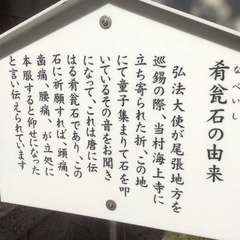 なべいし
肴瓮石の由来
弘法大使が尾張地方を
巡錫の際、当村海上寺に
立ち寄られた折、この地
にて童子集まりて石を叩
いているその音をお聞き
になって、これは唐に伝
はる肴瓮石であり、この
石に祈願すれば、頭痛、
歯痛、腰痛、が立処に
本服すると仰せになった
と言い伝えられています